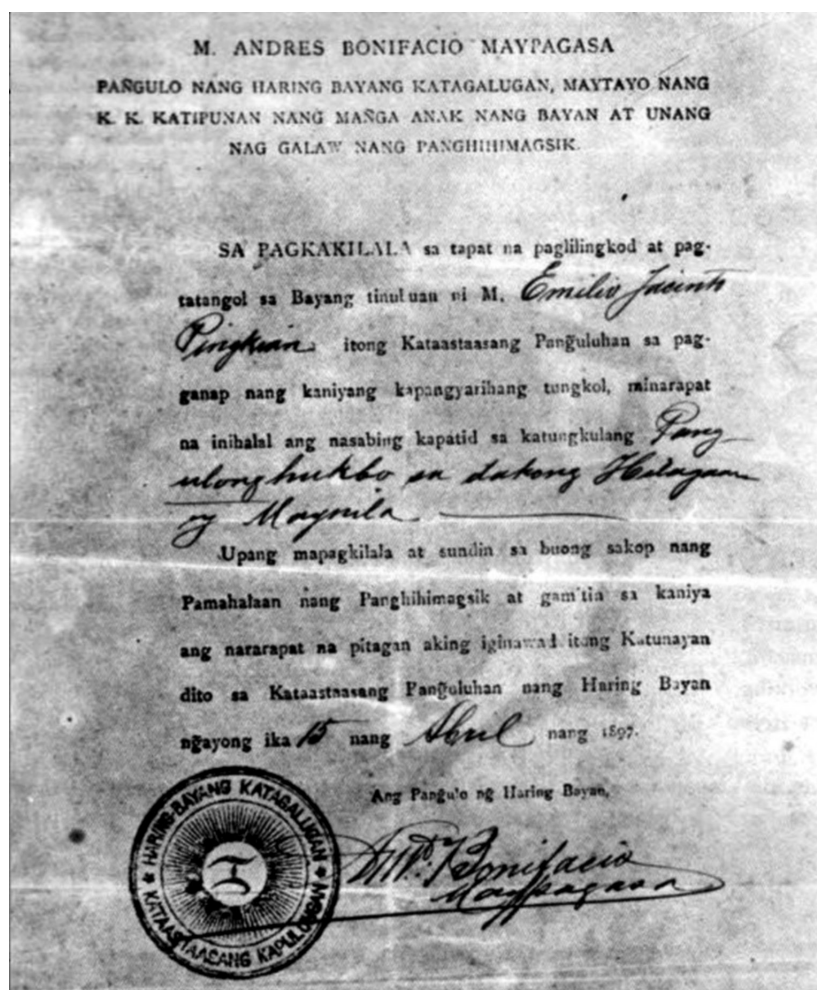 M. ANDRES BONIFACIO MAYPAGASA
PANG̃ULO NANG HARING BAYANG KATAGALUGAN, MAYTAYO NANG
K. K. KATIPUNAN NANG MANG̃A ANAK NANG BAYAN AT UNANG
NAG GALAW NANG PANGHIHIMAGSIK.
SA PAGKAKILALA sa tapat na paglilingkod at pag-
tatangol sa Bayang tinubuan ni M. Emilio Jacinto
Pingkian itong Kataastaasang Pang̃uluhan sa pag-
ganap nang kaniyang kapangyarihang tungkol, minarapat
na inihalal ang nasabing kapatid sa katungkulang Pang-
ulong hukbo sa dakong Hilagaan
ng Maynila
Upang mapagkilala at sundin sa buong sakop nang
Pamahalaan nang Panghihimagsik at gamtin sa kaniya
ang nararapat na pitagan aking iginawad itong Katunayan
dito sa Kataastaasang Pang̃uluhan nang Haring Bayan
ng̃ayong ika 15 nang Abril nang 1897.
Ang Pangulo ng Haring Bayan,
And. Bonifacio
Maypagasa
HARING-BAYANG KATAGALUGAN
KATAASTAASANG KAPULUNGAN